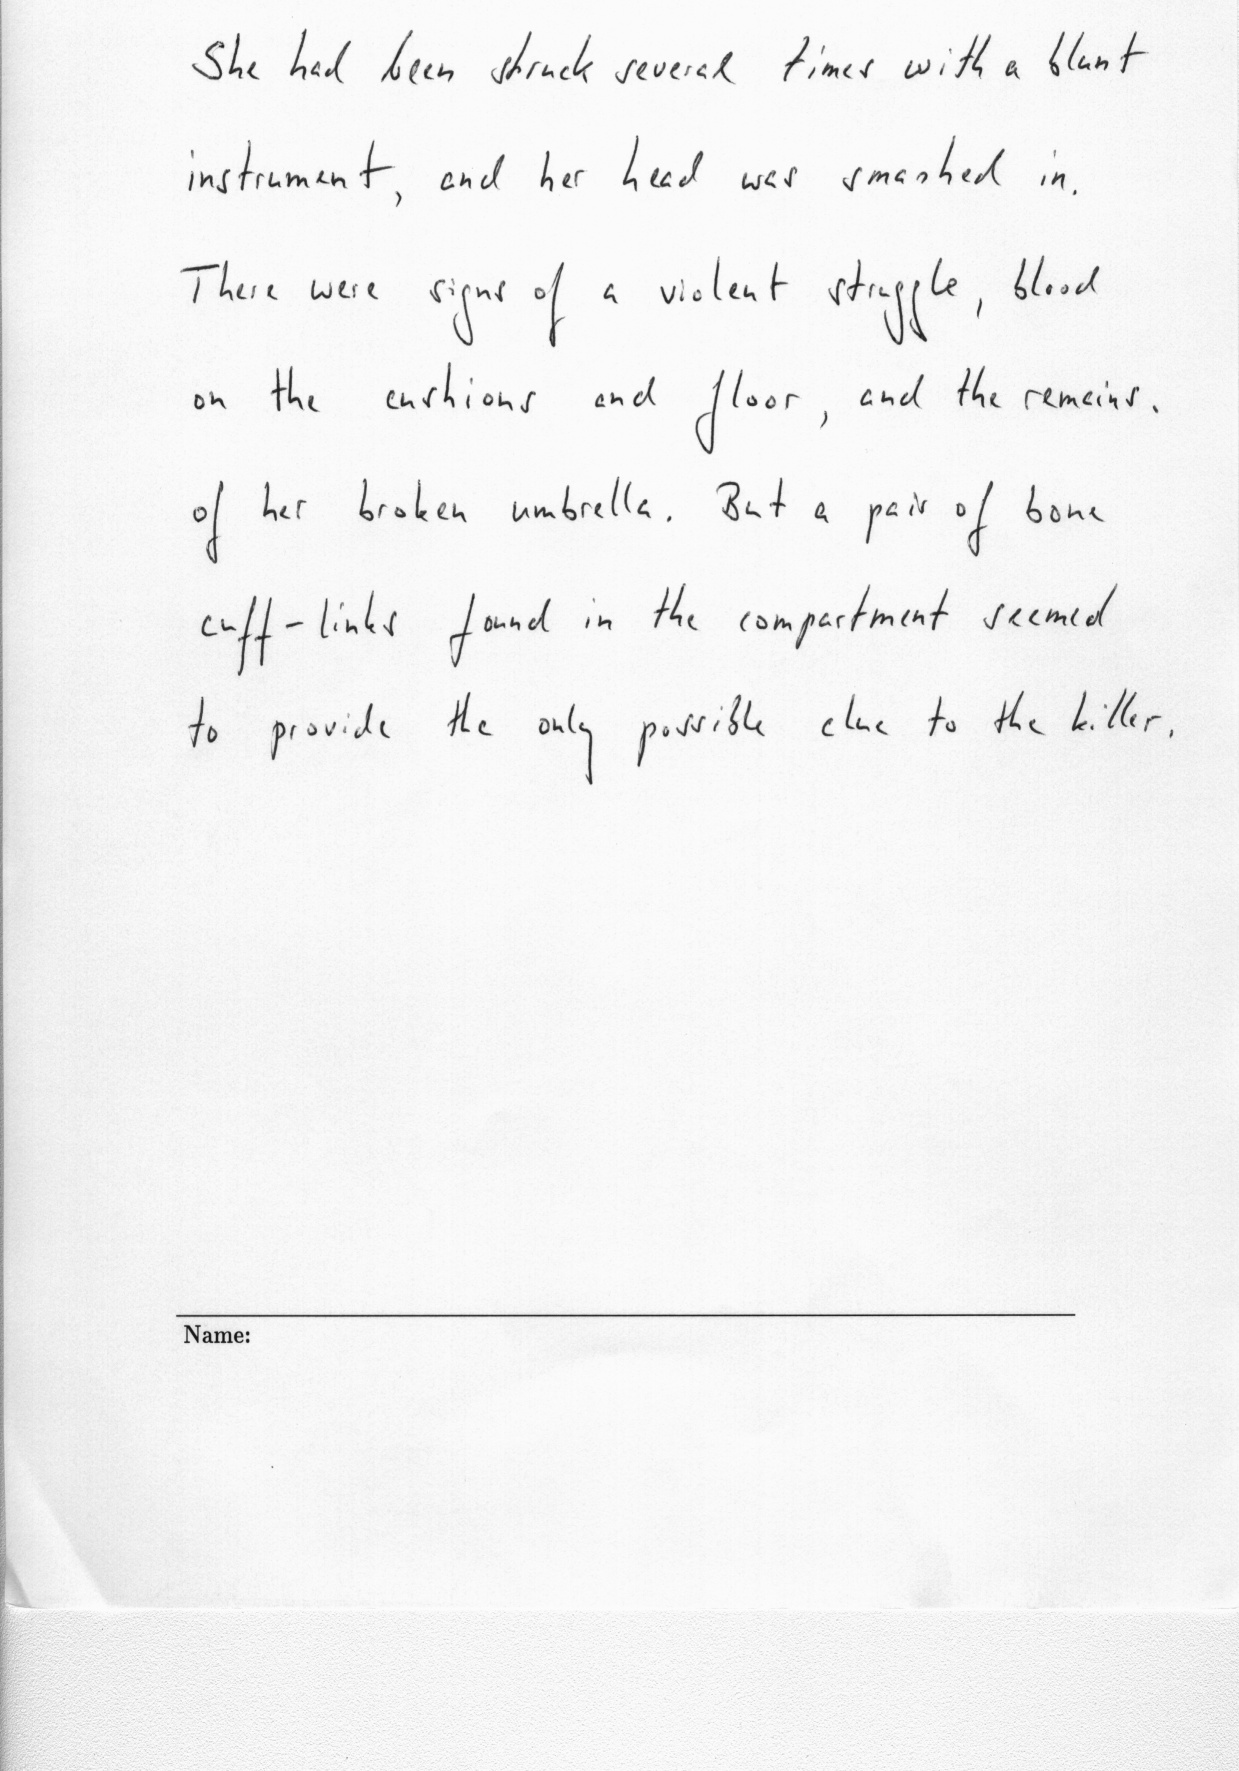 She had been struck several times with a blunt
instrument, and her head was smashed in.
There were signs of a violent struggle, blood
on the cushions and floor, and the remains.
of her broken umbrella. But a pair of bone
cuff-links found in the compartment seemed
to provide the only possible clue to the killer.
Name: